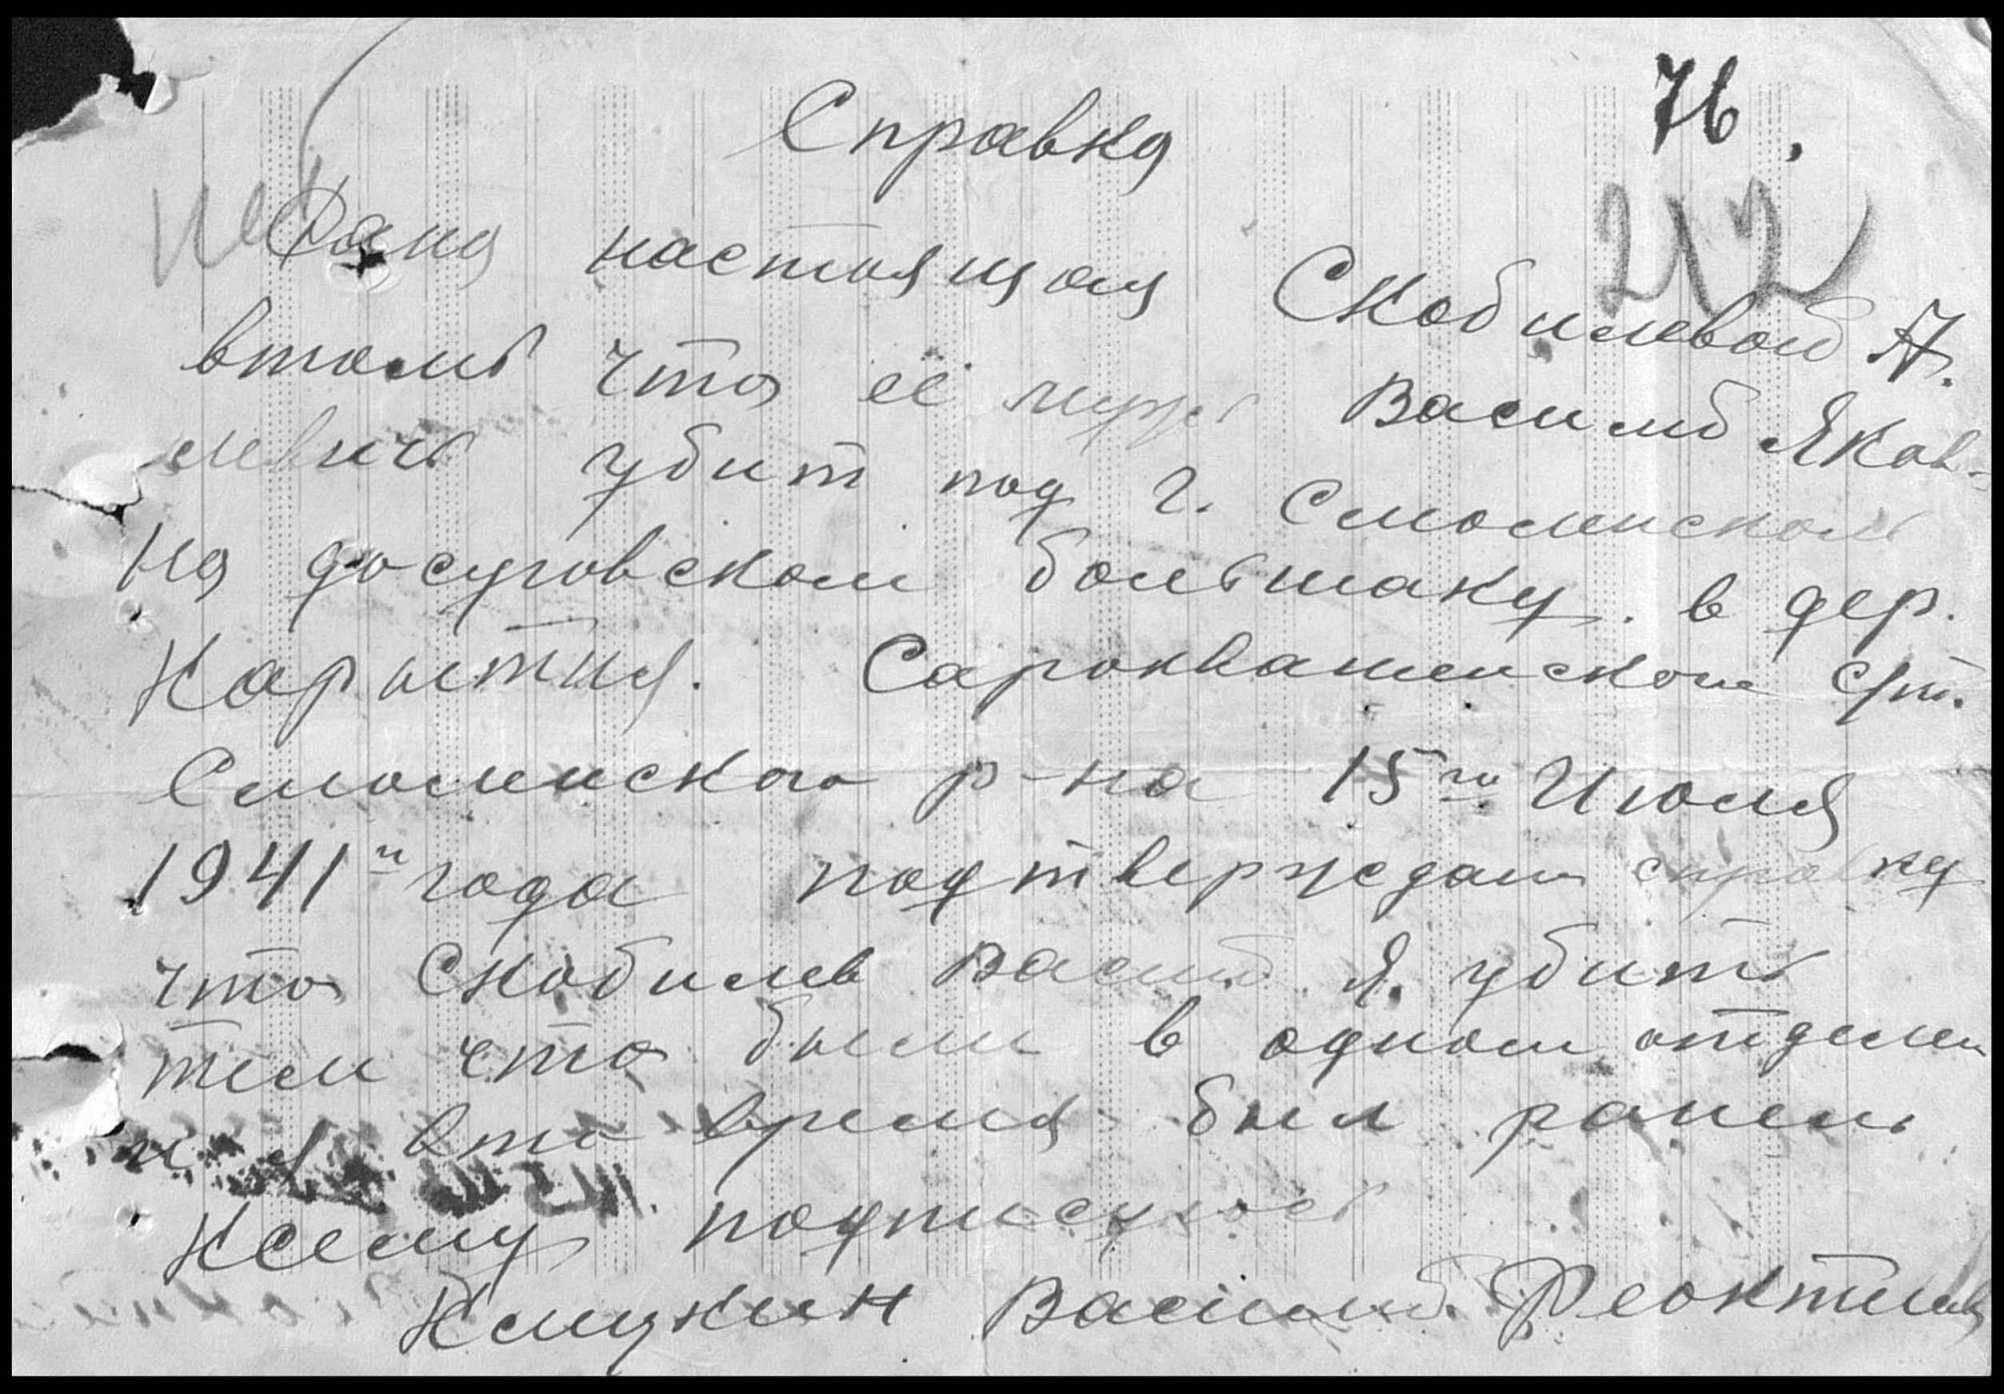 76.
Справка
212
Дана настоящая Скобилевой А.
втомъ что её мужъ Василий Яков-
левичь убит под г. Смоленском
На досуговском большаку. в дер.
Карытня. Сароквашенском с/т.
Смоленского р-на 15го Июля
1941го года подтверждаю справку
что Скобилев Васил. Я. убитъ
тем что были в одном отделен
и я вто время был ранен
Ксему подписуюсь
Клцукин Василий. Феоктилов